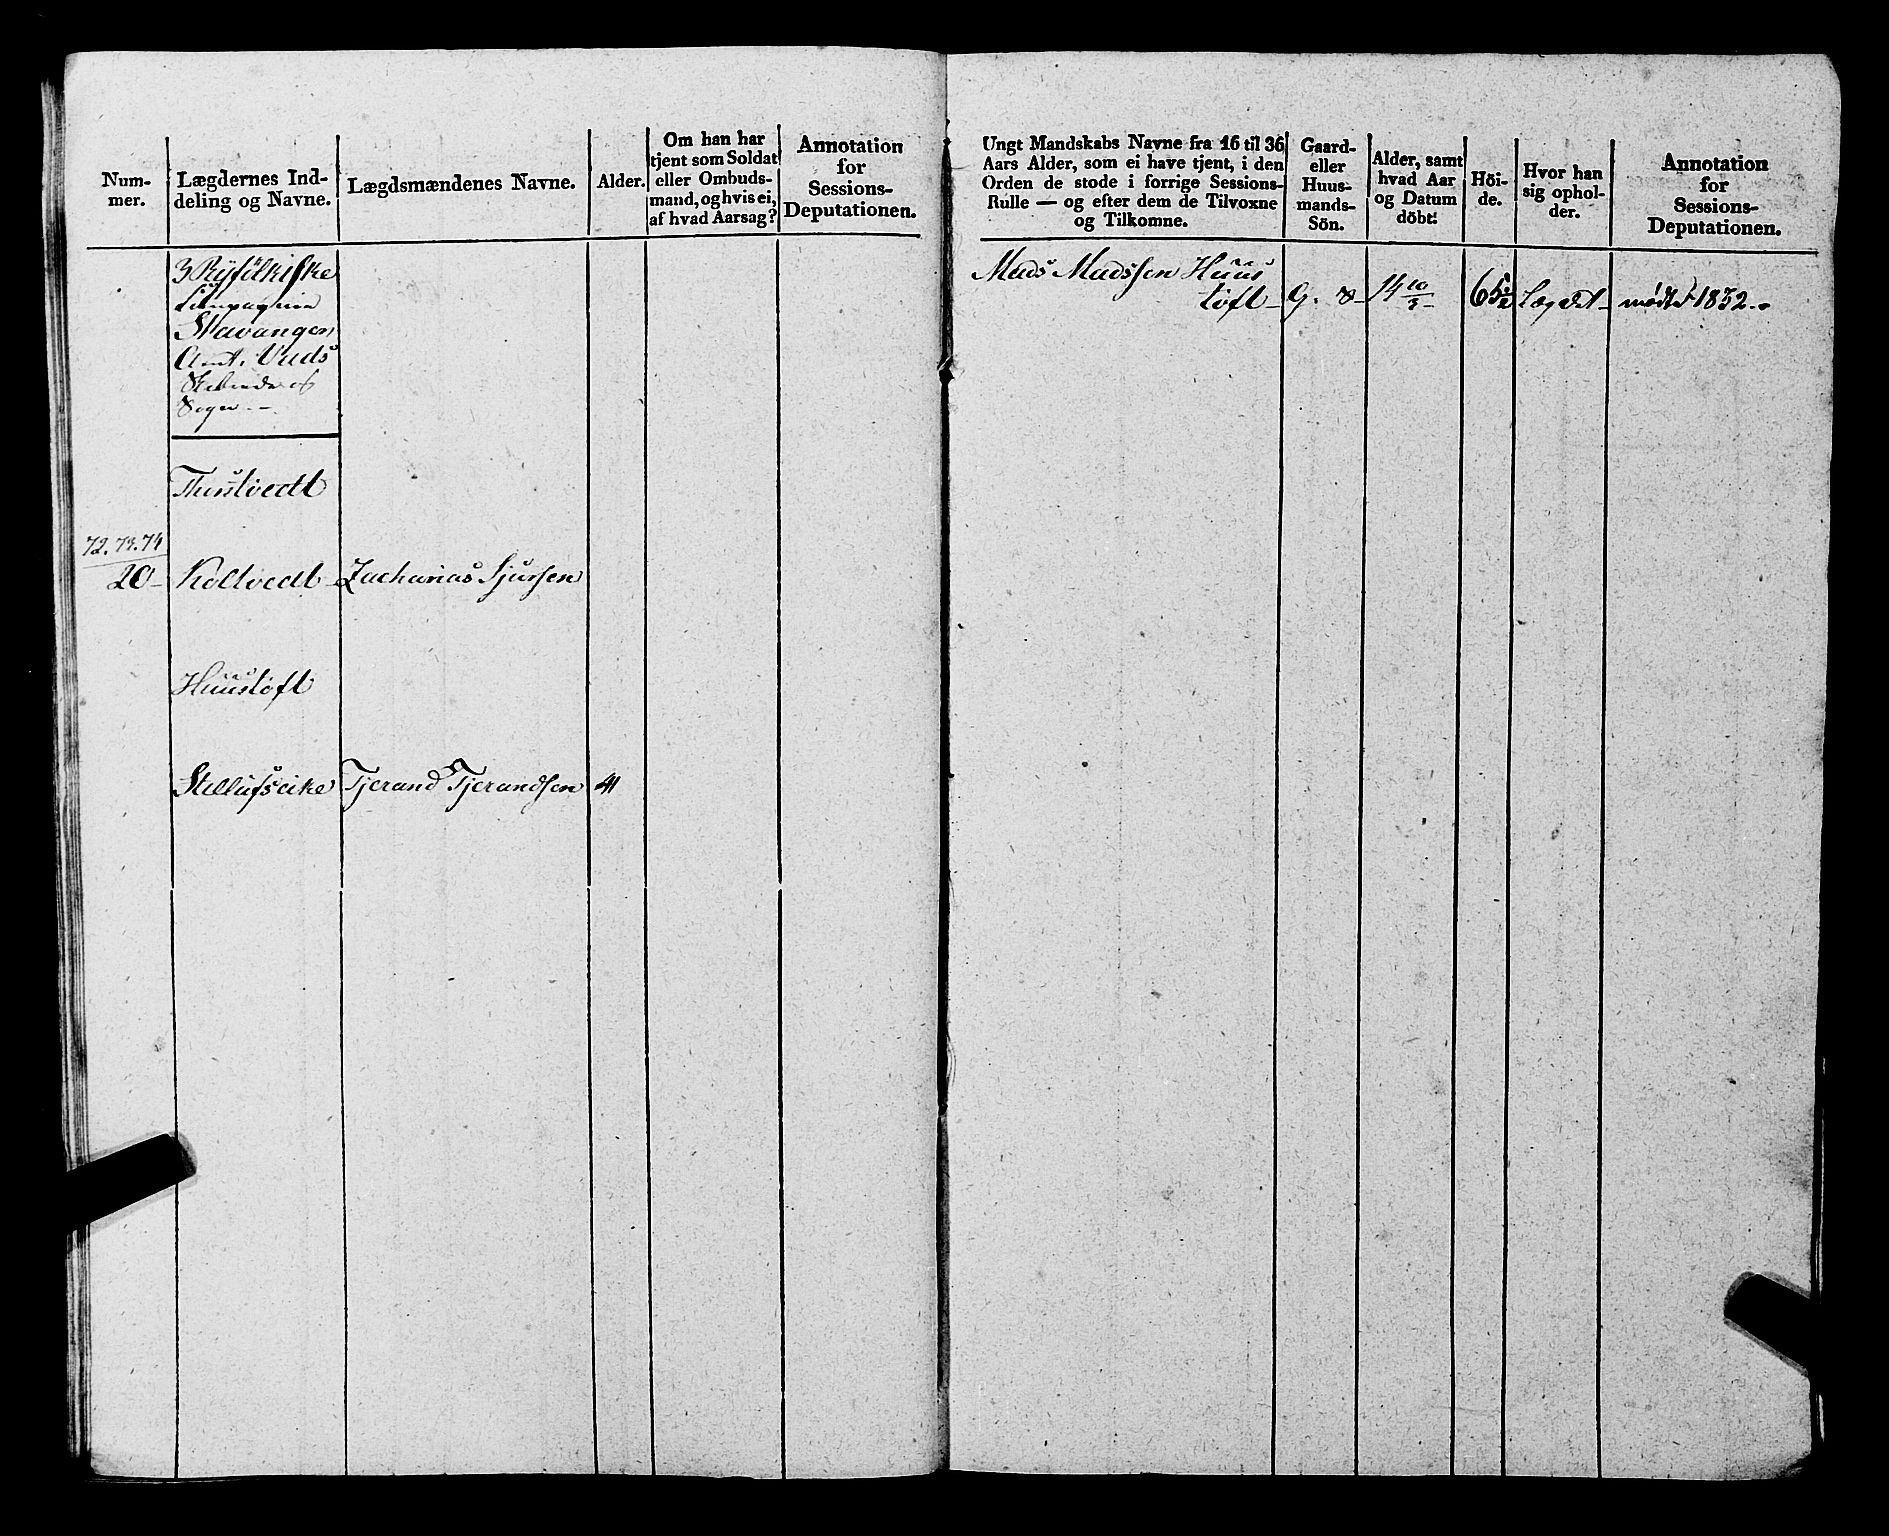 Num-
mer.
Lægdernes Ind-
deling og Navne.
Lægdsmændenes Navne.
Alder.
Om han har
tjent som Soldat
eller Ombuds-
mand, og hvis ei,
af hvad Aarsag?
Annotation
for
Sessions-
Deputationen.
3 Ryfölkiske
Compagnie
Stavanger
Amt. Vuds
Sogn --
Thustvedt
72. 73. 74
20 - Koltvedt - Zacharias Sjursen
Huustøft
Tjerand Tjerandsen 41
Ungt Mandskabs Navne fra 16 til 36
Aars Alder, som ei have tjent, i den
Orden de stode i forrige Sessions-
Rulle — og efter dem de Tilvoxne
og Tilkomne.
Gaard-
eller
Huus-
mands-
Sön.
Alder, samt
hvad Aar
og Datum
döbt.
Höi-
de.
Hvor han
sig ophol-
der.
Annotation
for
Sessions-
Deputationen.
Mads Madssen Huus
tøft - G. S - 14 10/3 - 65½ Lægdet - mødt 1832 -